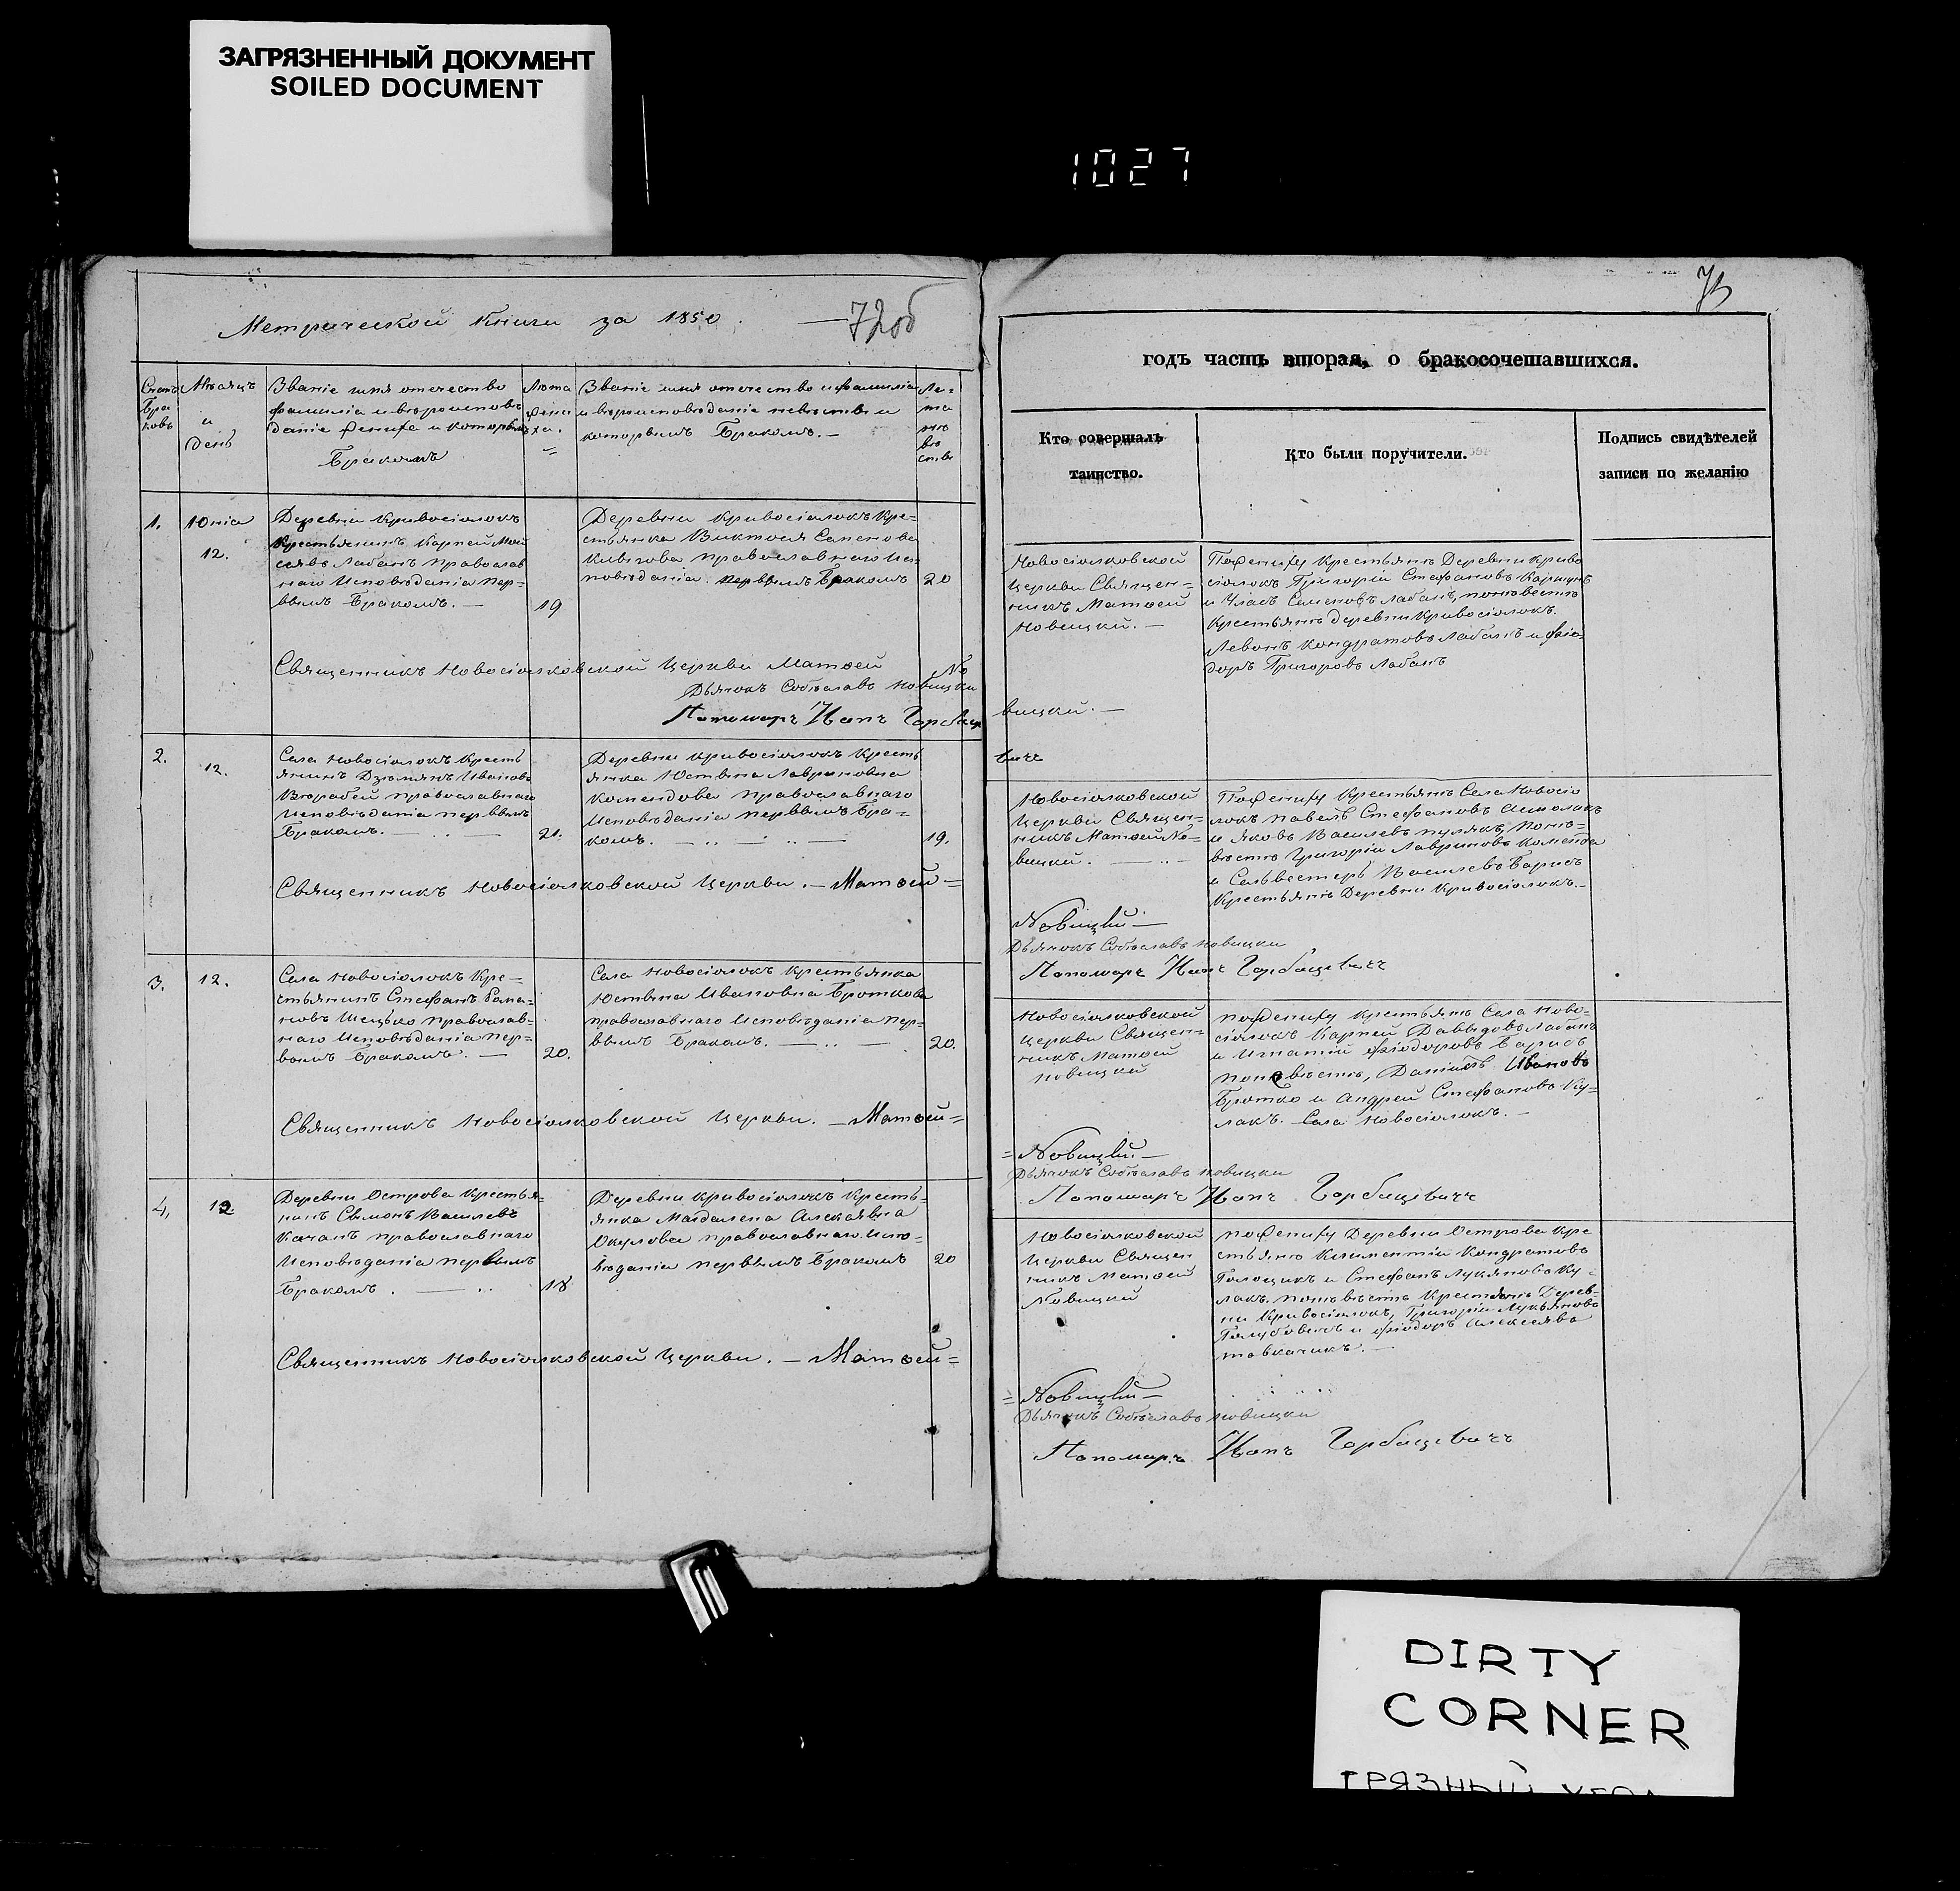 ЗАГРЯЗНЕННЫЙ ДОКУМЕНТ
SOILED DOCUMENT
1027
Метрической Книги за 1850.
72об
73
годъ часть вторая, о бракосочетавшихся.
Счетъ Браковъ
Мѣсяцъ и день
Званіе имя отечество
фамилія и вѣроисповѣ
даніе жениха и которымъ
Бракомъ
Лѣта
жени
ха.
Званіе имя отечество и фамилія
и вѣроисповѣданіе невѣсты и
которымъ Бракомъ.—
Лѣ=
та
не
вѣ
сты
Кто совершалъ
таинство.
Кто были поручители.
Подпись свидѣтелей
записи по желанію
1.
Юнія
12.
Деревни Кривосіолокъ
Крестьянинъ Карпей Мои
сеевъ Лабанъ православ
наго Исповѣданія пер=
вымъ Бракомъ.—
19
Деревни Кривосіолокъ Кре=
стьянка Виктося Семенова
православнаго Ис=
повѣданія первымъ Бракомъ
20
Новосіолковской
Церкви Священ=
никъ Матѳей
Новицкій.—
Пожениху Крестьянъ Деревни Криво
сіолокъ Григорій Стефановъ
и Власъ Семеновъ Лабанъ, поневѣстѣ
Крестьянъ деревни Кривосіолокъ.
Левонъ Кондратовъ Лабанъ и Фіо=
доръ Григоровъ Лабанъ
Священникъ Новосіолковской Церкви Матѳей Но
вицкій.—
Дьячокъ Собѣславъ Новицки
Пономарь Иванъ Горбаце
вичъ
2.
12.
Села Новосіолокъ Кресть
янинъ Дземянъ Ивановъ
православнаго
Исповѣданія первымъ
Бракомъ.
21.
Деревни Кривосіолокъ Кресть
янка Юстына Лавриновна
Комендова православнаго
Исповѣданія первымъ Бра=
комъ.
19.
Новосіолковской
Церкви Священ=
никъ Матѳей Но=
вицкій.
Пожениху Крестьянъ Села Новосіо
локъ Павелъ Стефановъ
и Яковъ Василевъ Пулякъ, Поне=
вѣстѣ Григорій Лавриновъ Коменда
и Сельвестеръ Василевъ Барисъ
Крестьянъ Деревни Кривосіолокъ.—
Священникъ Новосіолковской Церкви.—Матѳей=
Новицкій—
Дьячокъ Собѣславъ Новицки
Пономарь Иванъ Горбацевичъ
3.
12.
Села Новосіолокъ Кре=
стьянинъ Стефанъ Рома=
новъ Шецько православ=
наго Исповѣданія пер=
вымъ Бракомъ.—
20.
Села Новосіолокъ Крестьянка
Юстына Ивановна Броткова
православнаго Исповѣданія пер=
вымъ Бракомъ.
20.
Новосіолковской
Церкви Священ=
никъ Матѳей
Новицкій
пожениху Крестьянъ Села Ново=
сіолокъ Карпей Давыдовъ Лабанъ
и Игнатій Фіодоровъ Барисъ
поневѣстѣ, Даніилъ Ивановъ
Бротко и Андрей Стефановъ Ку=
лакъ. Села Новосіолокъ.—
Священникъ Новосіолковской Церкви.—Матѳей=
=Новицкій—
Дьячокъ Собѣславъ Новицки
Пономарь Иванъ Горбацевичъ
4.
12
Деревни Острова Крестья=
нинъ Сымонъ Василевъ
Качанъ православнаго
Исповѣданія первымъ
Бракомъ.
18
Деревни Кривосіолокъ Кресть=
янка Магдалена Алекѣевна
православнаго Испо=
вѣданія первымъ Бракомъ
20
Новосіолковской
Церкви Священ
никъ Матѳей
Новицкій
пожениху Деревни Острова Кре
стьянъ Климентій Кондратовъ
и Стефанъ Лукяновъ Ку=
лакъ. поневѣстѣ Крестьянъ Дерев=
ни Кривосіолокъ, Григорій Лукьяновъ
и Фіодоръ Алексѣевъ
Священникъ Новосіолковской Церкви.—Матѳей=
=Новицкій—
Дьячокъ Собѣславъ Новицки
Пономарь Иванъ Горбацевичъ
DIRTY
CORNER
ГРЯЗНЫЙ УГОЛ